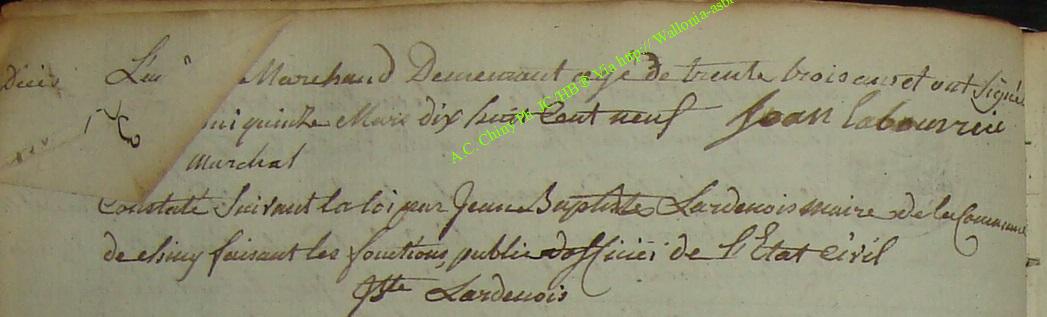 Décès
Marchand Demeurant agé de trente trois ans et ont Signé
quinze Mars dix huit Cent neuf Jean labouverie
Marchal
Constaté Suivant la loi par Jean Baptiste Lardenois maire de la Commune
de chiny faisant les fonctions public dofficier de l'Etat Civil
Jbte Lardenois
A.C. Chiny Ph. JC/HB @ Via http:// Wallonia-asb